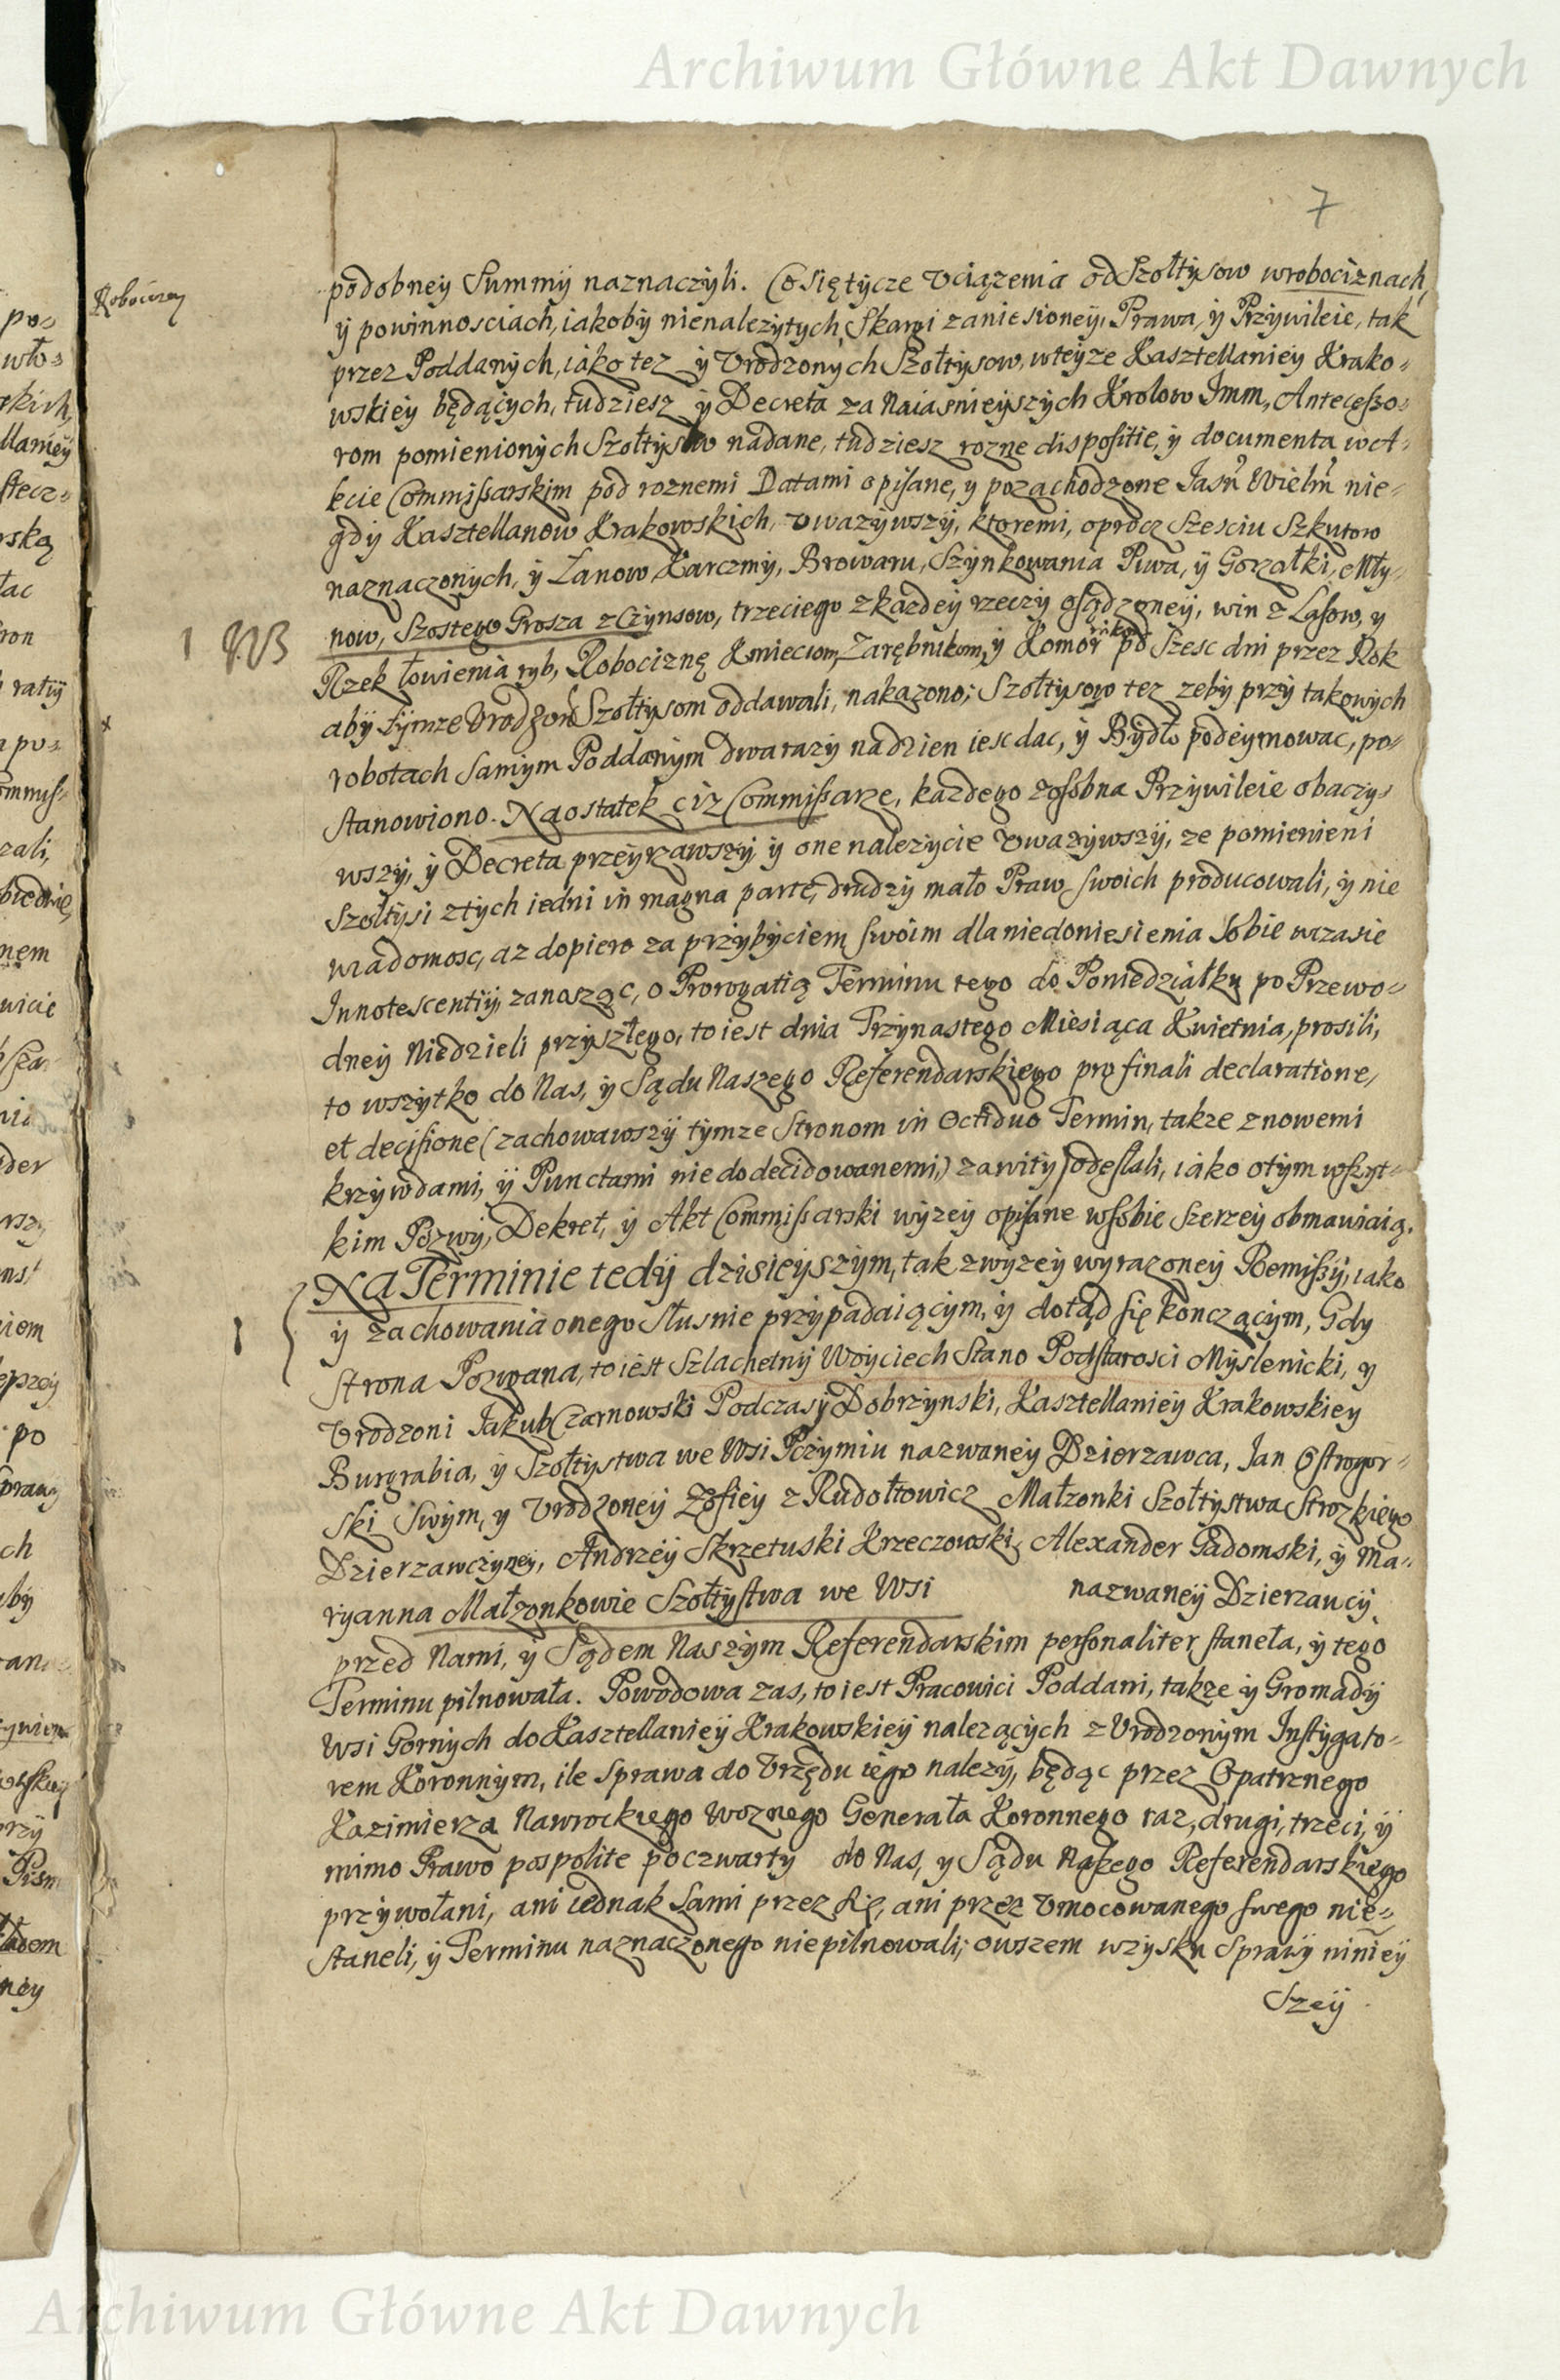 Archiwum Główne Akt Dawnych
7
Robocizny
podobney Summy naznaczyli. Co się tycze vciązenia od Szołtysow w robociznach,
y powinnosciach, iakoby nienalezytych, Skargi zaniesioney, Prawa, y Przywileie, tak
przez Poddanych, iako tez y Vrodzonych Szołtysow, wteyze Kasztellaniey Krako-
wskiey będących, tudziesz y Decreta za Naiasnieyszych Krolow Imm, Antecesso-
rom pomienionych Szołtysow nadane, tudziesz rozne dispositie, y documenta w A-
kcie Commissarskim pod roznemi Datami opisane, y pozachodzone Jasn Wielm nie-
gdy Kasztellanow Krakowskich, vwazywszy, ktoremi, oprocz Szesciu Szkutow
naznaczonych, y Łanow Karczmy, Browaru, Szynkowania Piwa, y Gorzałki, Mły-
1 NB
now, Szostego Grosza z Czynsow, trzeciego z kazdey rzeczy osądzoney, win z Lasow, y
Rzek łowienia ryb, Robociznę Kmieciom, Zarębnikom, y Komornikom po Szesc dni przez Rok
aby tymze Vrodzon Szołtysom oddawali, nakazono; Szołtysow tez zeby przy takowych
robotach Samym Poddanym dwa razy na dzien iesc dac, y Bydło podeymowac, po-
stanowiono. Na ostatek ciz Commissarze, kazdego zosobna Przywileie obaczy-
wszy, y Decreta przeyrzawszy y one nalezycie vwazywszy, ze pomienieni
Szołtysi z tych iedni in magna parte, drudzy mało Praw swoich producowali, y nie
wiadomosc, az dopiero za przybyciem swoim dla niedoniesienia Sobie wczasie
Innotescentiy, zanosząc, o Prorogatią Terminu tego do Poniedziałku po Przewo-
dney Niedzieli przyszłego, to iest dnia Trzynastego Miesiąca Kwietnia, prosili,
to wszytko do Nas, y Sądu Naszego Referendarskiego pro finali declaratione,
et decisione (zachowawszy tymze Stronom in Octiduo Termin, takze z nowemi
krzywdami, y Punctami nie dodecidowanemi,) zawity odesłali, iako o tym wszyt-
kim Pozwy, Dekret, y Akt Commissarski wyzey opisane w sobie szerzey obmawiaią.
Na Terminie tedy dzisieyszym, tak z wyzey wyrazoney Remissy, iako
y zachowania onego słusnie przypadaiącym, y dotąd się konczącym, Gdy
1
strona Pozwana, to iest Szlachetny Woyciech Stano Podstarosci Myslenicki, y
Vrodzoni Jakub Czarnowski Podczasy Dobrzynski, Kasztellaniey Krakowskiey
Burgrabia, y Szołtystwa we Wsi Pczymiu nazwaney Dzierzawca, Jan Ostrogor-
ski Swym, y Vrodzoney Zofiey z Rudołtowicz Małzonki Szołtystwa Strozkiego
Dzierzawczyney, Andrzey Skrzetuski Krzeczowski, Alexander Gadomski, y Ma-
ryanna Małzonkowie Szołtystwa we Wsi nazwaney Dzierzawcy,
przed Nami, y Sądem Naszym Referendarskim personaliter staneła, y tego
Terminu pilnowała. Powodowa zas, to iest Pracowici Poddani, takze y Gromady
Wsi Gornych do Kasztellaniey Krakowskiey nalezących z Vrodzonym Instygato-
rem Koronnym, ile Sprawa do Vrzędu iego nalezy, będąc przez Opatrznego
Kazimierza Nawrockiego Woznego Generała Koronnego raz, drugi, trzeci, y
mimo Prawo pospolite poczwarty do Nas, y Sądu Naszego Referendarskiego
przywołani, ani iednak Sami przez Się, ani przez Vmocowanego swego nie-
staneli, y Terminu naznaczonego nie pilnowali; owszem wzysku Sprawy niniey
Szey
Archiwum Główne Akt Dawnych